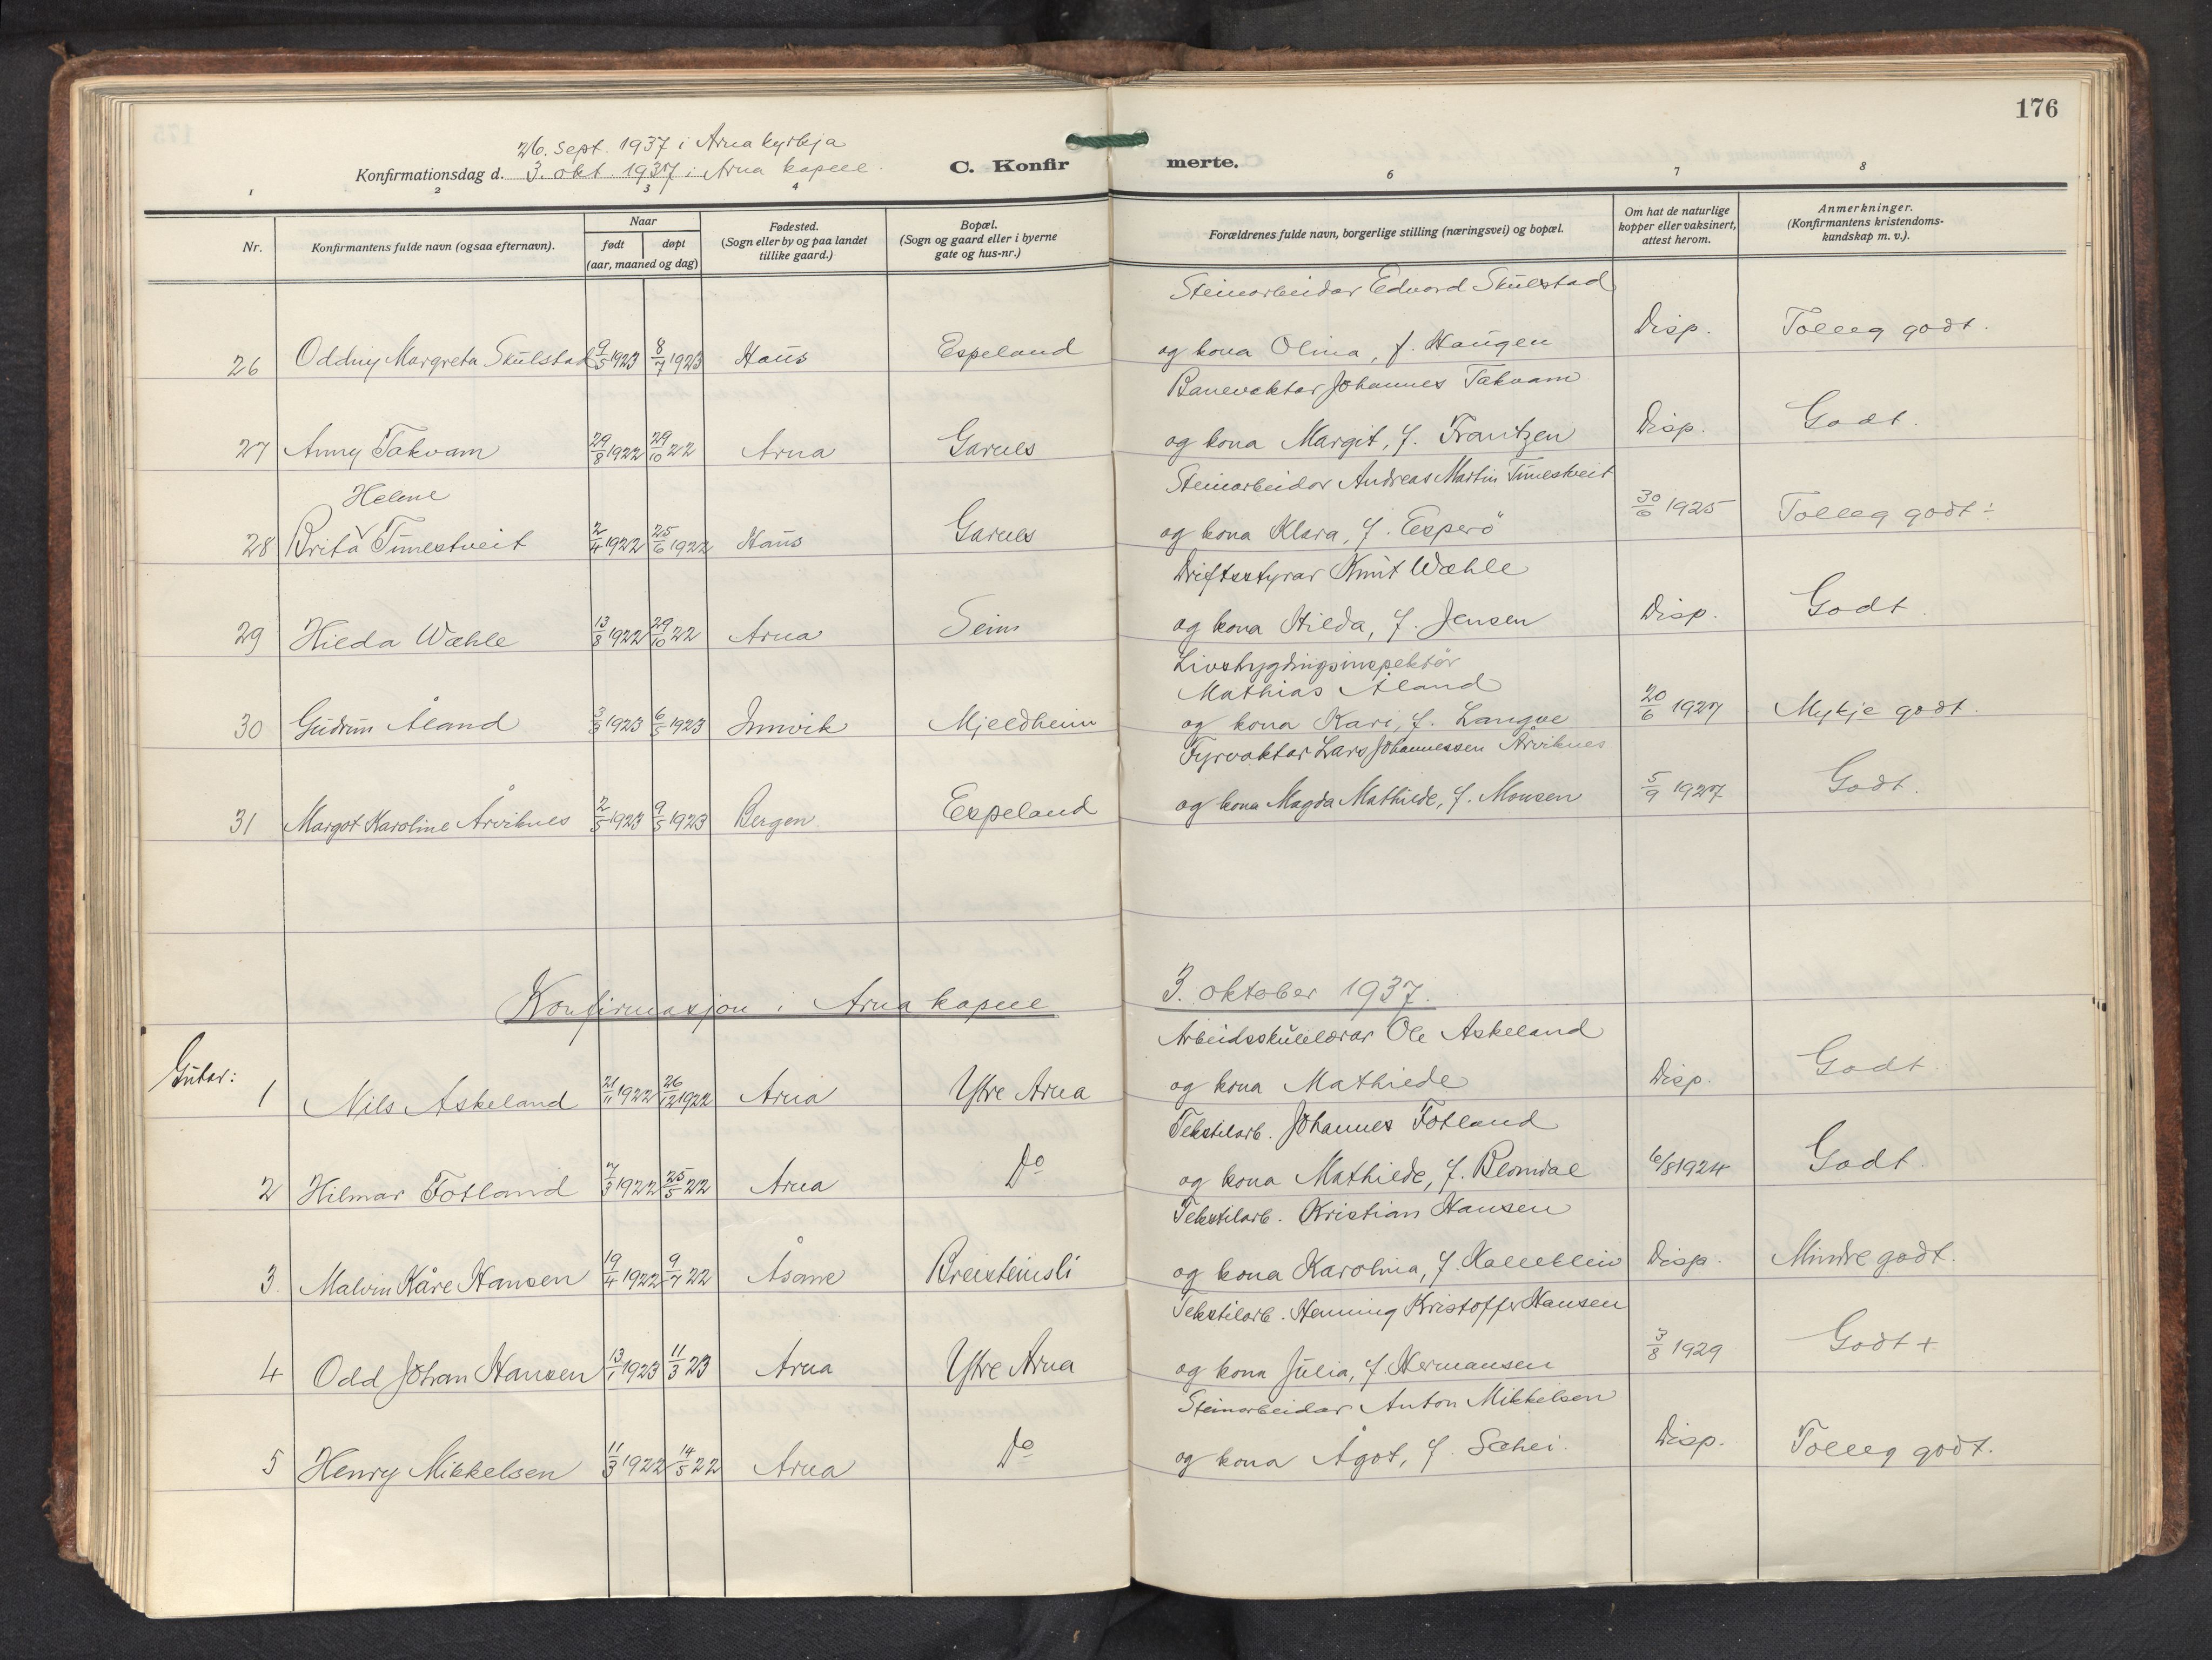 176
26. sept. 1937 i Arna kyrkja
Konfirmationsdag d. 3. okt. 1937 i Arna kapell. C. Konfirmerte.
1 2 3 4 6 7 8
Nr. Konfirmantens fulde navn (ogsaa efternavn). Naar født døpt (aar, maaned og dag) Fødested. (Sogn eller by og paa landet tillike gaard.) Bopæl. (Sogn og gaard eller i byerne gate og hus-nr.) Forældrenes fulde navn, borgerlige stilling (næringsvei) og bopæl. Om hat de naturlige kopper eller vaksinert, attest herom. Anmerkninger. (Konfirmantens kristendoms-kundskap m. v.).
Steinarbeidar Edvard Skulstad
26 Oddny Margreta Skulstad 9/5 1923 8/7 1923 Haus Espeland og kona Olina, f. Haugen Disp. Tolleg godt.
Banevaktar Johannes Takvam
27 Anny Takvam 29/8 1922 29/10 22 Arna Garnes og kona Margit, f. Frantzen Disp. Godt.
Helene
Steinarbeidar Andreas Martin Tunestveit
28 Brita Tunestveit 2/4 1922 25/6 1922 Haus Garnes og kona Klara, f. Esperö 30/6 1925 Tolleg godt ÷
Driftsstyrar Knut Wæhle
29 Hilda Wæhle 13/8 1922 29/10 22 Arna Seim og kona Hilda, f. Jensen Disp. Godt.
Livstrygdingsinspektör
Mathias Åland
30 Gudrun Åland 3/3 1923 6/5 1923 Innvik Mjeldheim og kona Kari, f. Langve 20/6 1927 Mykje godt.
Fyrvaktar Lars Johannessen Årviknes
31 Margot Karoline Årviknes 2/5 1923 9/5 1923 Bergen Espeland og kona Magda Mathilde, f. Monsen 5/9 1927 Godt.
Konfirmasjon i Arna kapell 3. oktober 1937.
Arbeidsskulelærar Ole Askeland
Gutar:
1 Nils Askeland 21/11 1922 26/12 1922 Arna Ytre Arna og kona Mathilde Disp. Godt
Tekstilarb. Johannes Fotland
2 Hilmar Fotland 7/3 1922 25/5 22 Arna Do og kona Mathilde, f. Blomdal 6/8 1924 Godt.
Tekstilarb. Kristian Hansen
3. Malvin Kåre Hansen 19/4 1922 9/7 22 Åsane Breisteinsli og kona Karolina, f. Kallekleiv Disp. Mindre godt.
Tekstilarb. Henning Kristoffer Hansen
4 Odd Johan Hansen 13/1 1923 11/3 23 Arna Ytre Arna og kona Julia, f. Hermansen 3/8 1929 Godt +
Steinarbeidar Anton Mikkelsen
5 Henry Mikkelsen 11/3 1922 14/5 22 Arna Do og kona Ågot, f. Schei. Disp. Tolleg godt.